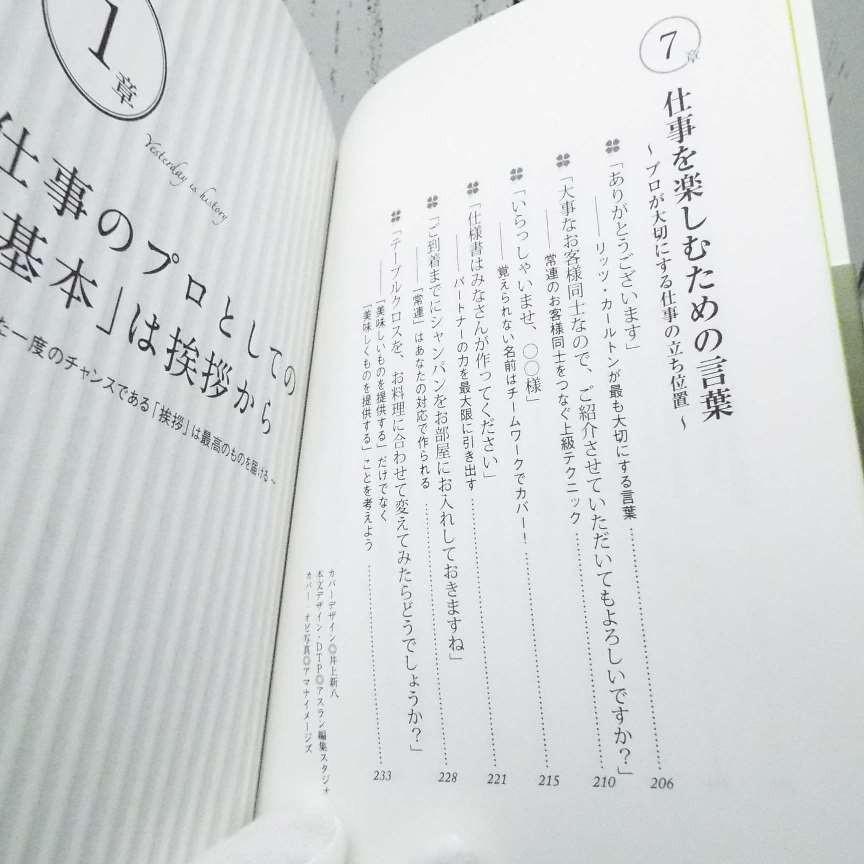 7章
仕事を楽しむための言葉
～プロが大切にする仕事の立ち位置～
「ありがとうございます」
――リッツ・カールトンが最も大切にする言葉 …… 206
「大事なお客様同士なので、ご紹介させていただいてもよろしいですか？」
――常連のお客様同士をつなぐ上級テクニック …… 210
「いらっしゃいませ、〇〇様」
――覚えられない名前はチームワークでカバー！ …… 215
「仕様書はみなさんが作ってください」
――パートナーの力を最大限に引き出す …… 221
「ご到着までにシャンパンをお部屋にお入れしておきますね」
――「常連」はあなたの対応で作られる …… 228
「テーブルクロスを、お料理に合わせて変えてみたらどうでしょうか？」
――「美味しいものを提供する」だけでなく
「美味しくものを提供する」ことを考えよう …… 233
カバーデザイン◎井上新八
本文デザイン・DTP◎アスラン編集スタジオ
カバー・オビ写真◎アマナイメージズ
1章
Yesterday is history
仕事のプロとしての
基本」は挨拶から
た一度のチャンスである「挨拶」は最高のものを届ける～